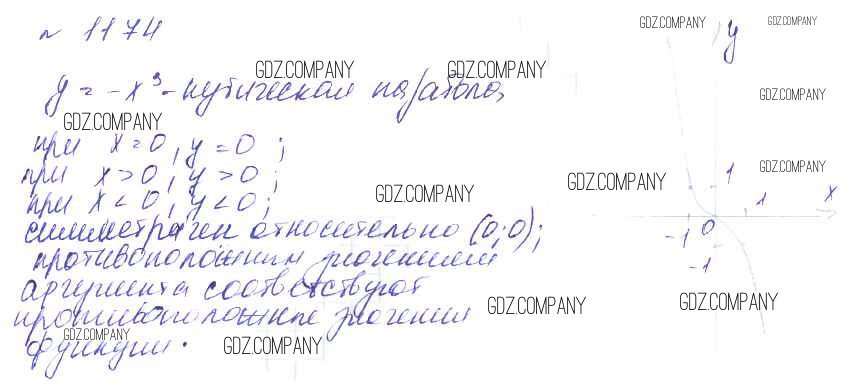 № 1174
y = -x³ - кубическая парабола,
при x = 0, y = 0 ;
при x > 0, y > 0 ;
при x < 0, y < 0 ;
симметричен относительно (0;0);
противоположным значениям
аргумента соответствуют
противоположные значения
функции.
y
1
1
x
-1
0
-1
GDZ.COMPANY
GDZ.COMPANY
GDZ.COMPANY
GDZ.COMPANY
GDZ.COMPANY
GDZ.COMPANY
GDZ.COMPANY
GDZ.COMPANY
GDZ.COMPANY
GDZ.COMPANY
GDZ.COMPANY
GDZ.COMPANY
GDZ.COMPANY